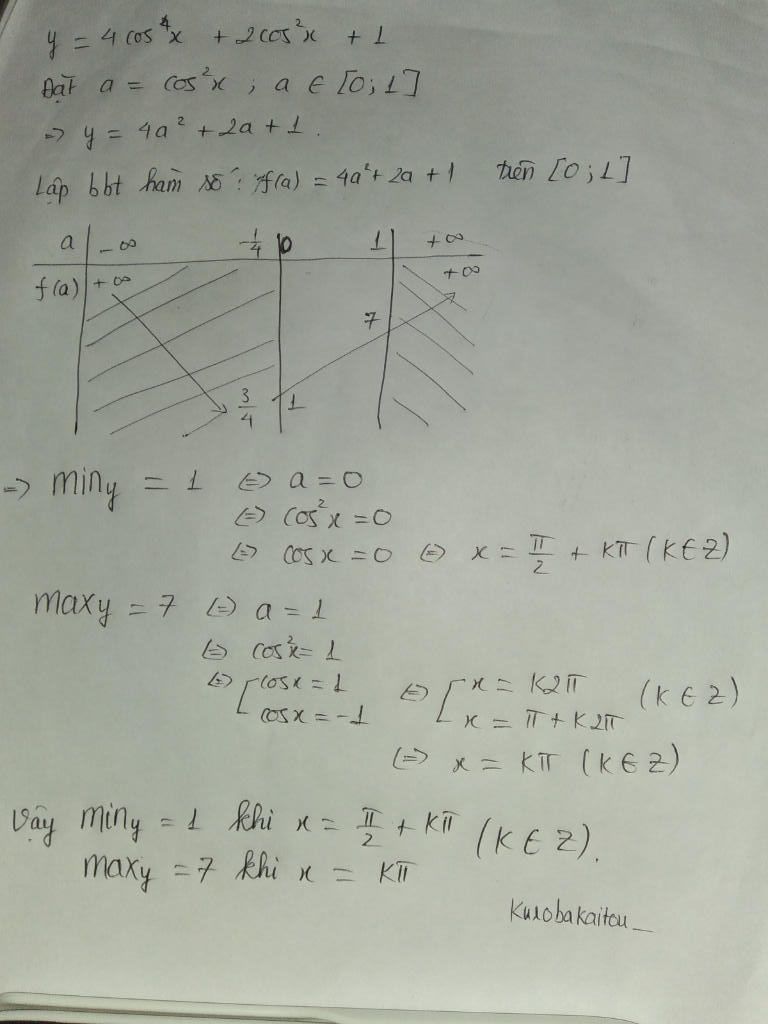 y = 4cos⁴x + 2cos²x + 1
Đặt a = cos²x ; a ∈ [0;1]
=> y = 4a² + 2a + 1.
Lập bbt hàm số: f(a) = 4a² + 2a + 1 trên [0;1]
a -∞ -1/4 0 1 +∞
f(a) +∞ +∞
7
3/4 1
=> miny = 1 <=> a = 0
<=> cos²x = 0
<=> cosx = 0 <=> x = π/2 + Kπ (K∈Z)
maxy = 7 <=> a = 1
<=> cos²x = 1
<=> [ cosx = 1 <=> [ x = K2π (K∈Z)
cosx = -1 x = π + K2π
<=> x = Kπ (K∈Z)
Vậy miny = 1 khi x = π/2 + Kπ (K∈Z).
maxy = 7 khi x = Kπ
Kurobakaitou_